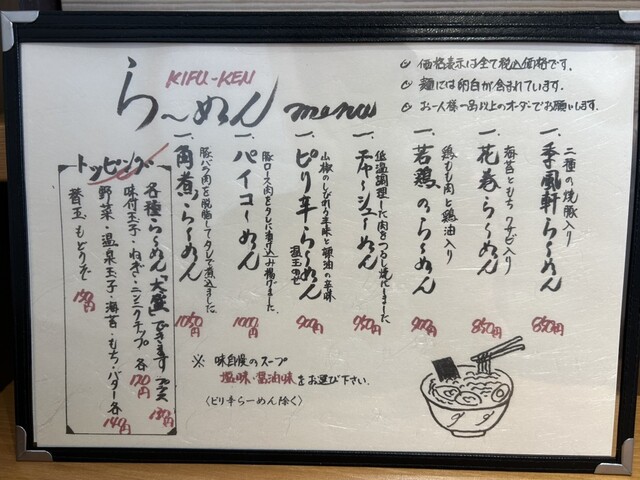 KIFU-KEN
らーめん menu
価格表示は全て税込価格です。
麺には卵白が含まれています。
お一人様一品以上のオーダーでお願いします。
一、季風軒らーめん
二種の焼豚入り
850円
一、花巻らーめん
海苔ともち ワサビ入り
850円
一、若鶏のらーめん
鶏もも肉と鶏油入り
900円
一、チャーシューめん
低温調理した肉をつるし焼にしました
950円
一、ピリ辛らーめん
山椒のしびれる辛味と辣油の辛味
温玉のせ
900円
一、パイコーめん
豚ロース肉をタレに漬け込み揚げました
1000円
一、角煮らーめん
豚バラ肉を脱脂してタレで煮込ました
1050円
トッピング
各種らーめん「大盛」できます プラス 130円
味付玉子・ねぎ・ニンニクチップ 各120円
野菜・温泉玉子・海苔・もち・バター 各140円
替玉もどうぞ 150円
※ 味自慢のスープ
塩味・醤油味をお選び下さい。
(ピリ辛らーめん除く)